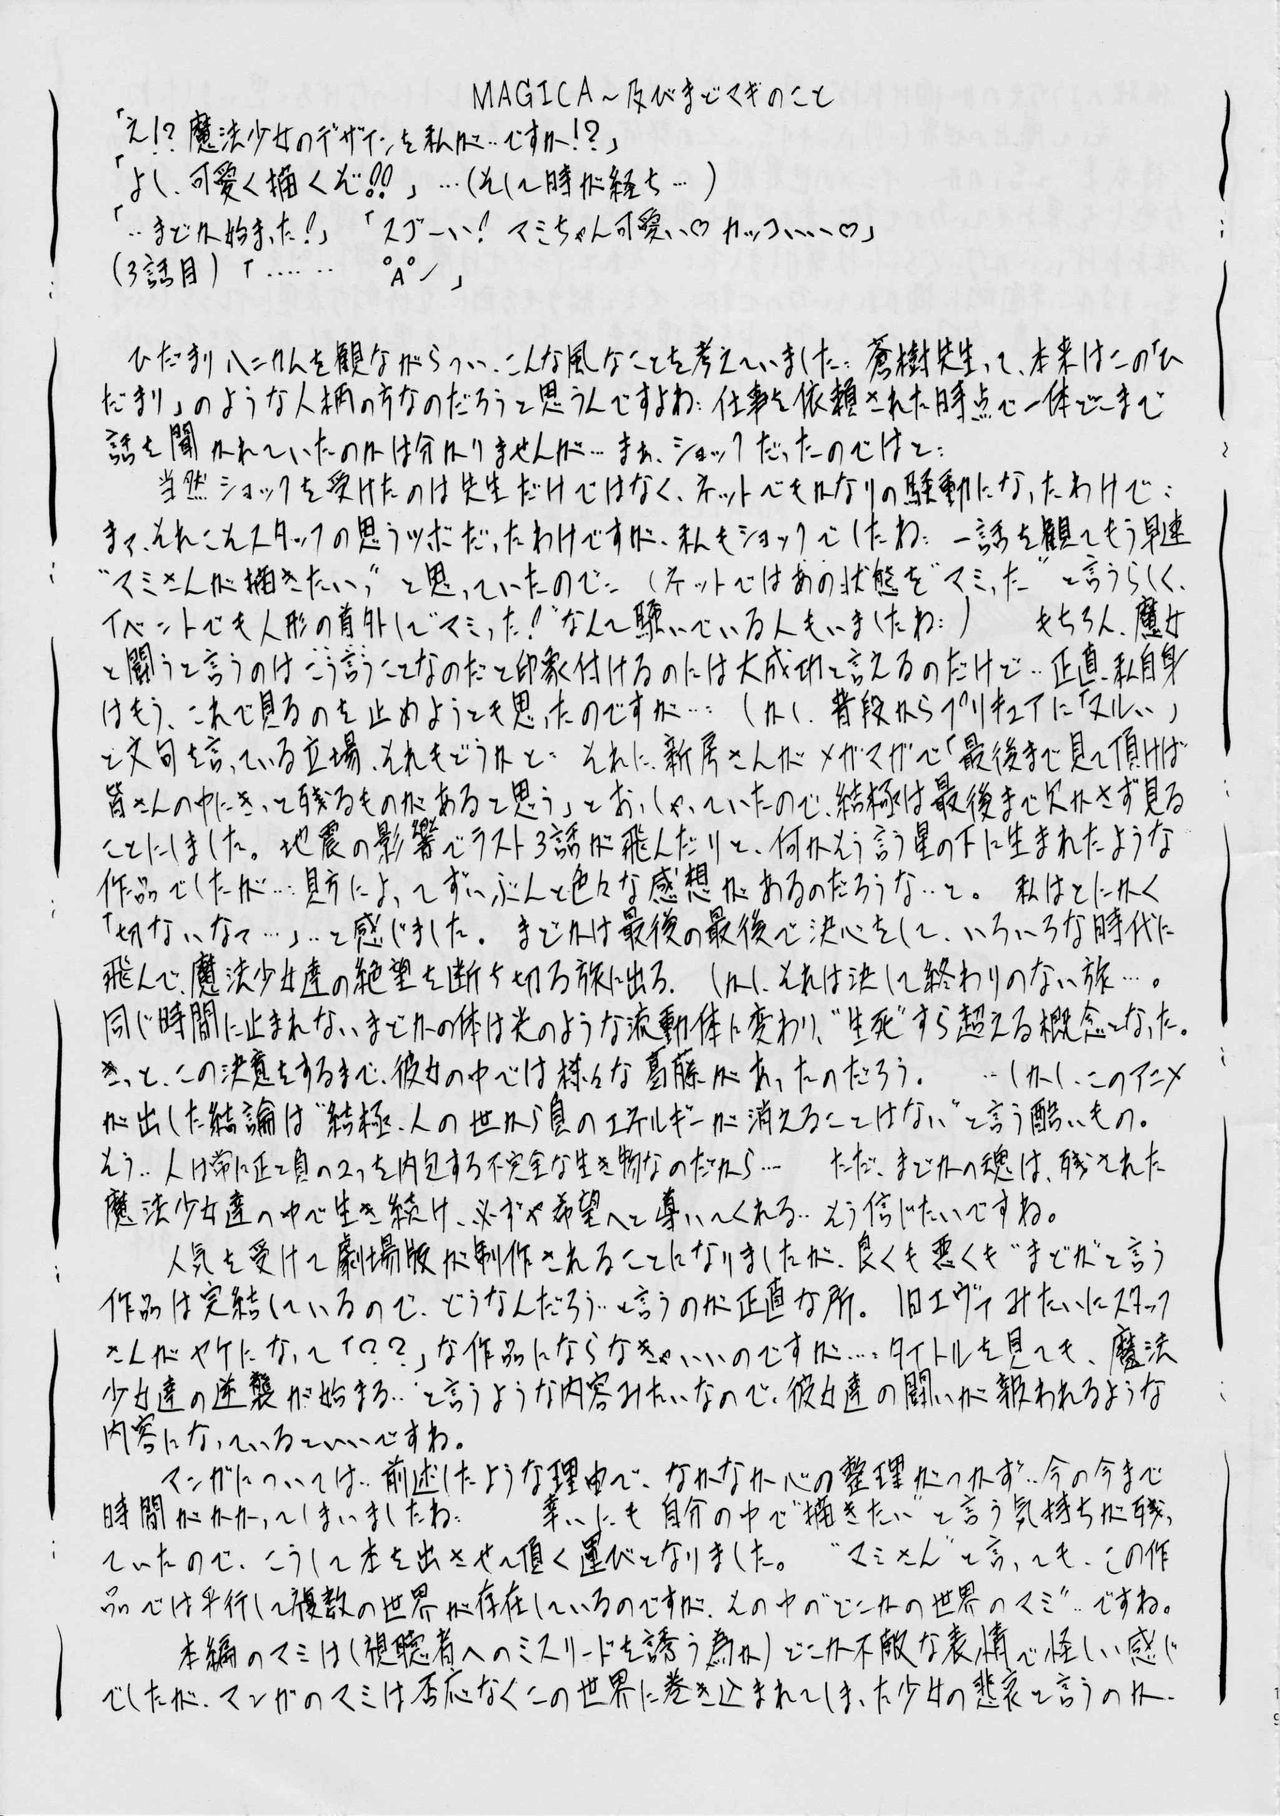 MAGICA～及びまどマギのこと
「え!? 魔法少女のデザインを私が‥ですか!?」
「よし、可愛く描くぞ!!」…(そして時が経ち…)
「‥まどか始まった!」「スゴーい! マミちゃん可愛い♡ カッコいいい♡」
(3話目)「…… °A°ノ 」
ひだまりハニカムを観ながらつい、こんな風なことを考えていました‥ 蒼樹先生って、本来はこの「ひ
だまり」のような人柄の方なのだろうと思うんですよね‥仕事を依頼された時点で一体どこまで
話を聞かれていたのかは分かりませんが…まぁ、ショックだったのではと‥
当然ショックを受けたのは先生だけではなく、ネットでもかなりの騒動になったわけで‥
まァ、それこそスタッフの思うツボだったわけですが、私もショックでしたね‥ 一話を観てもう早速
"マミさんが描きたい," と思っていたので‥ (ネットではあの状態を"マミった"と言うらしく、
イベントでも人形の首外して"マミった!"なんて騒いでいる人もいましたね‥) もちろん、魔女
と闘うと言うのはこう言うことなのだと印象付けるのには大成功と言えるのだけど‥正直、私自身
はもう、これで見るのを止めようとも思ったのですが…‥ しかし、普段からプリキュアに「ヌルい」
と文句を言っている立場、それもどうかと‥ それに、新房さんがメガマガで「最後まで見て頂ければ
皆さんの中にきっと残るものがあると思う」とおっしゃっていたので、結極は最後まで欠かさず見る
ことにしました。地震の影響でラスト3話が飛んだりと、何かそう言う星の下に生まれたような
作品でしたが…‥見方によってずいぶんと色々な感想があるのだろうな‥と。 私はとにかく
「切ないなァ…」‥と感じました。まどかは最後の最後で決心をして、いろいろな時代に
飛んで、魔法少女達の絶望を断ち切る旅に出る。しかし、それは決して終わりのない旅…。
同じ時間に止まれないまどかの体は光のような流動体に変わり、"生死"すら超える概念となった。
きっと、この決意をするまで、彼女の中では様々な葛藤があったのだろう。 ‥しかし、このアニメ
が出した結論は"結極、人の世から負のエネルギーが消えることはない"と言う酷いもの。
そう‥人は常に正と負の2つを内包する不完全な生き物なのだから… ただ、まどかの魂は、残された
魔法少女達の中で生き続け、必ずや希望へと導いてくれる‥そう信じたいですね。
人気を受けて劇場版が制作されることになりましたが、良くも悪くも"まどか"と言う
作品は完結しているので、どうなんだろう‥と言うのが正直な所。旧エヴァみたいにスタッフ
さんがヤケになって「??」な作品にならなきゃいいのですが…‥タイトルを見ても、魔法
少女達の逆襲が始まる‥と言うような内容みたいなので、彼女達の闘いが報われるような
内容になっているといいですね。
マンガについては‥前述したような理由で、なかなか心の整理がつかず‥今の今まで
時間がかかってしまいましたね‥ 幸いにも自分の中で"描きたい"と言う気持ちが残っ
ていたので、こうして本を出させて頂く運びとなりました。"マミさん"と言っても、この作
品では平行して複数の世界が存在しているのですが、その中の"どこかの世界のマミ"‥ですね。
本編のマミは(視聴者へのミスリードを誘う為か)どこか不敵な表情で怪しい感じ
でしたが、マンガのマミは否応なくこの世界に巻き込まれてしまった少女の悲哀と言うのか、
19